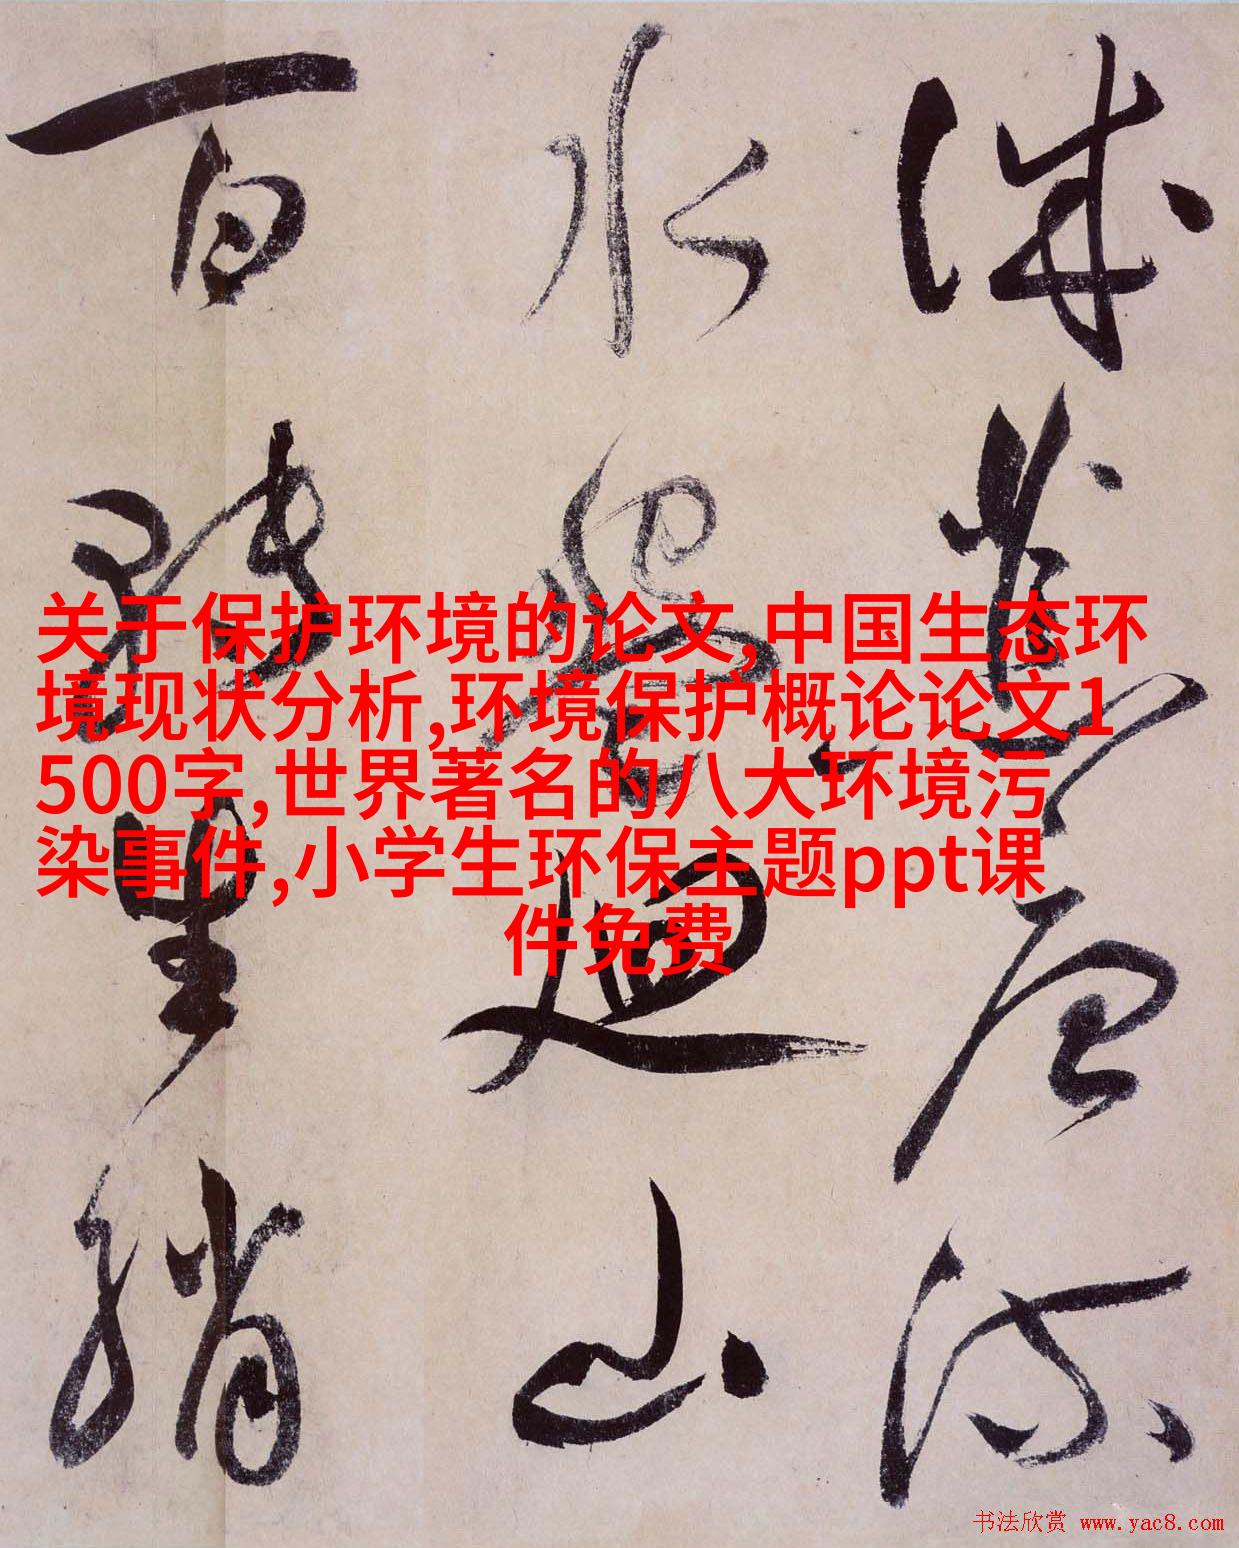 关于保护环境的论文,中国生态环
境现状分析,环境保护概论论文1
500字,世界著名的八大环境污
染事件,小学生环保主题ppt课
件免费
水縈迴山
百
书法欣赏 www.yac8.com